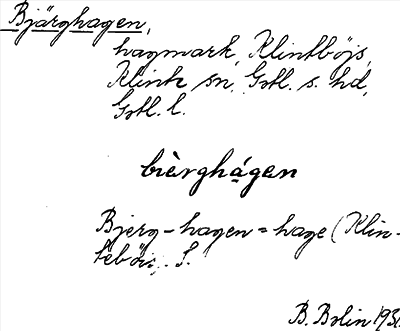 Bjärghagen,
hagmark, Klintböjs,
Klinte sn, Gotl. s. hd,
Gotl. l.
bièrghágen
Bjerg-hagen = hage (Klin-
S.
B. Bolin 193